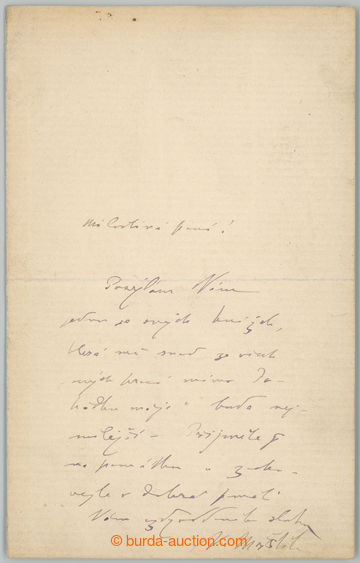 Milostivá paní!
Posýlám Vám
jednu ze svých knížek,
která mě snad ze všech
mých prací mimo „Po-
hádku máje“ bude nej-
milejší – Přijměte ji
na památku a zacho-
vejte v dobré paměti
Vám
© burda-auction.com